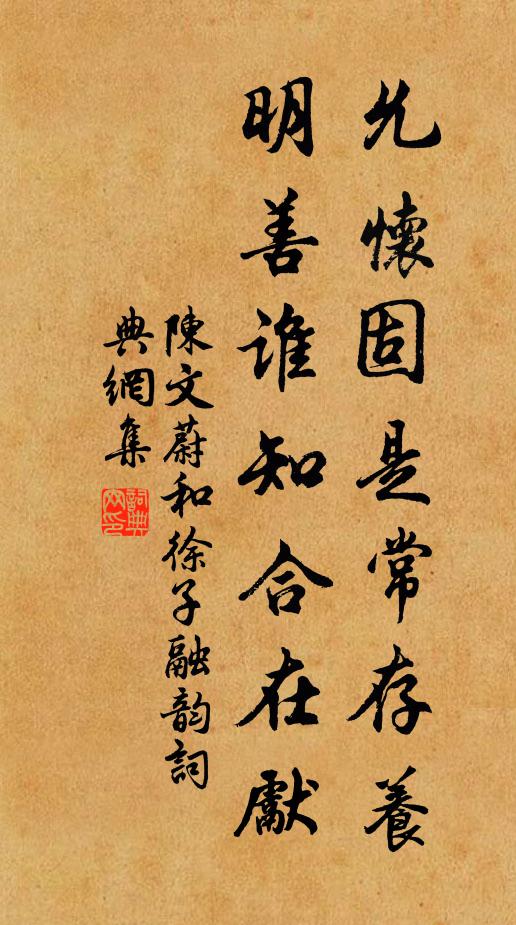 允懷固是常存養
明善誰知合在獻
陳文蔚和徐子融韵詞
典網集
詞典
网印